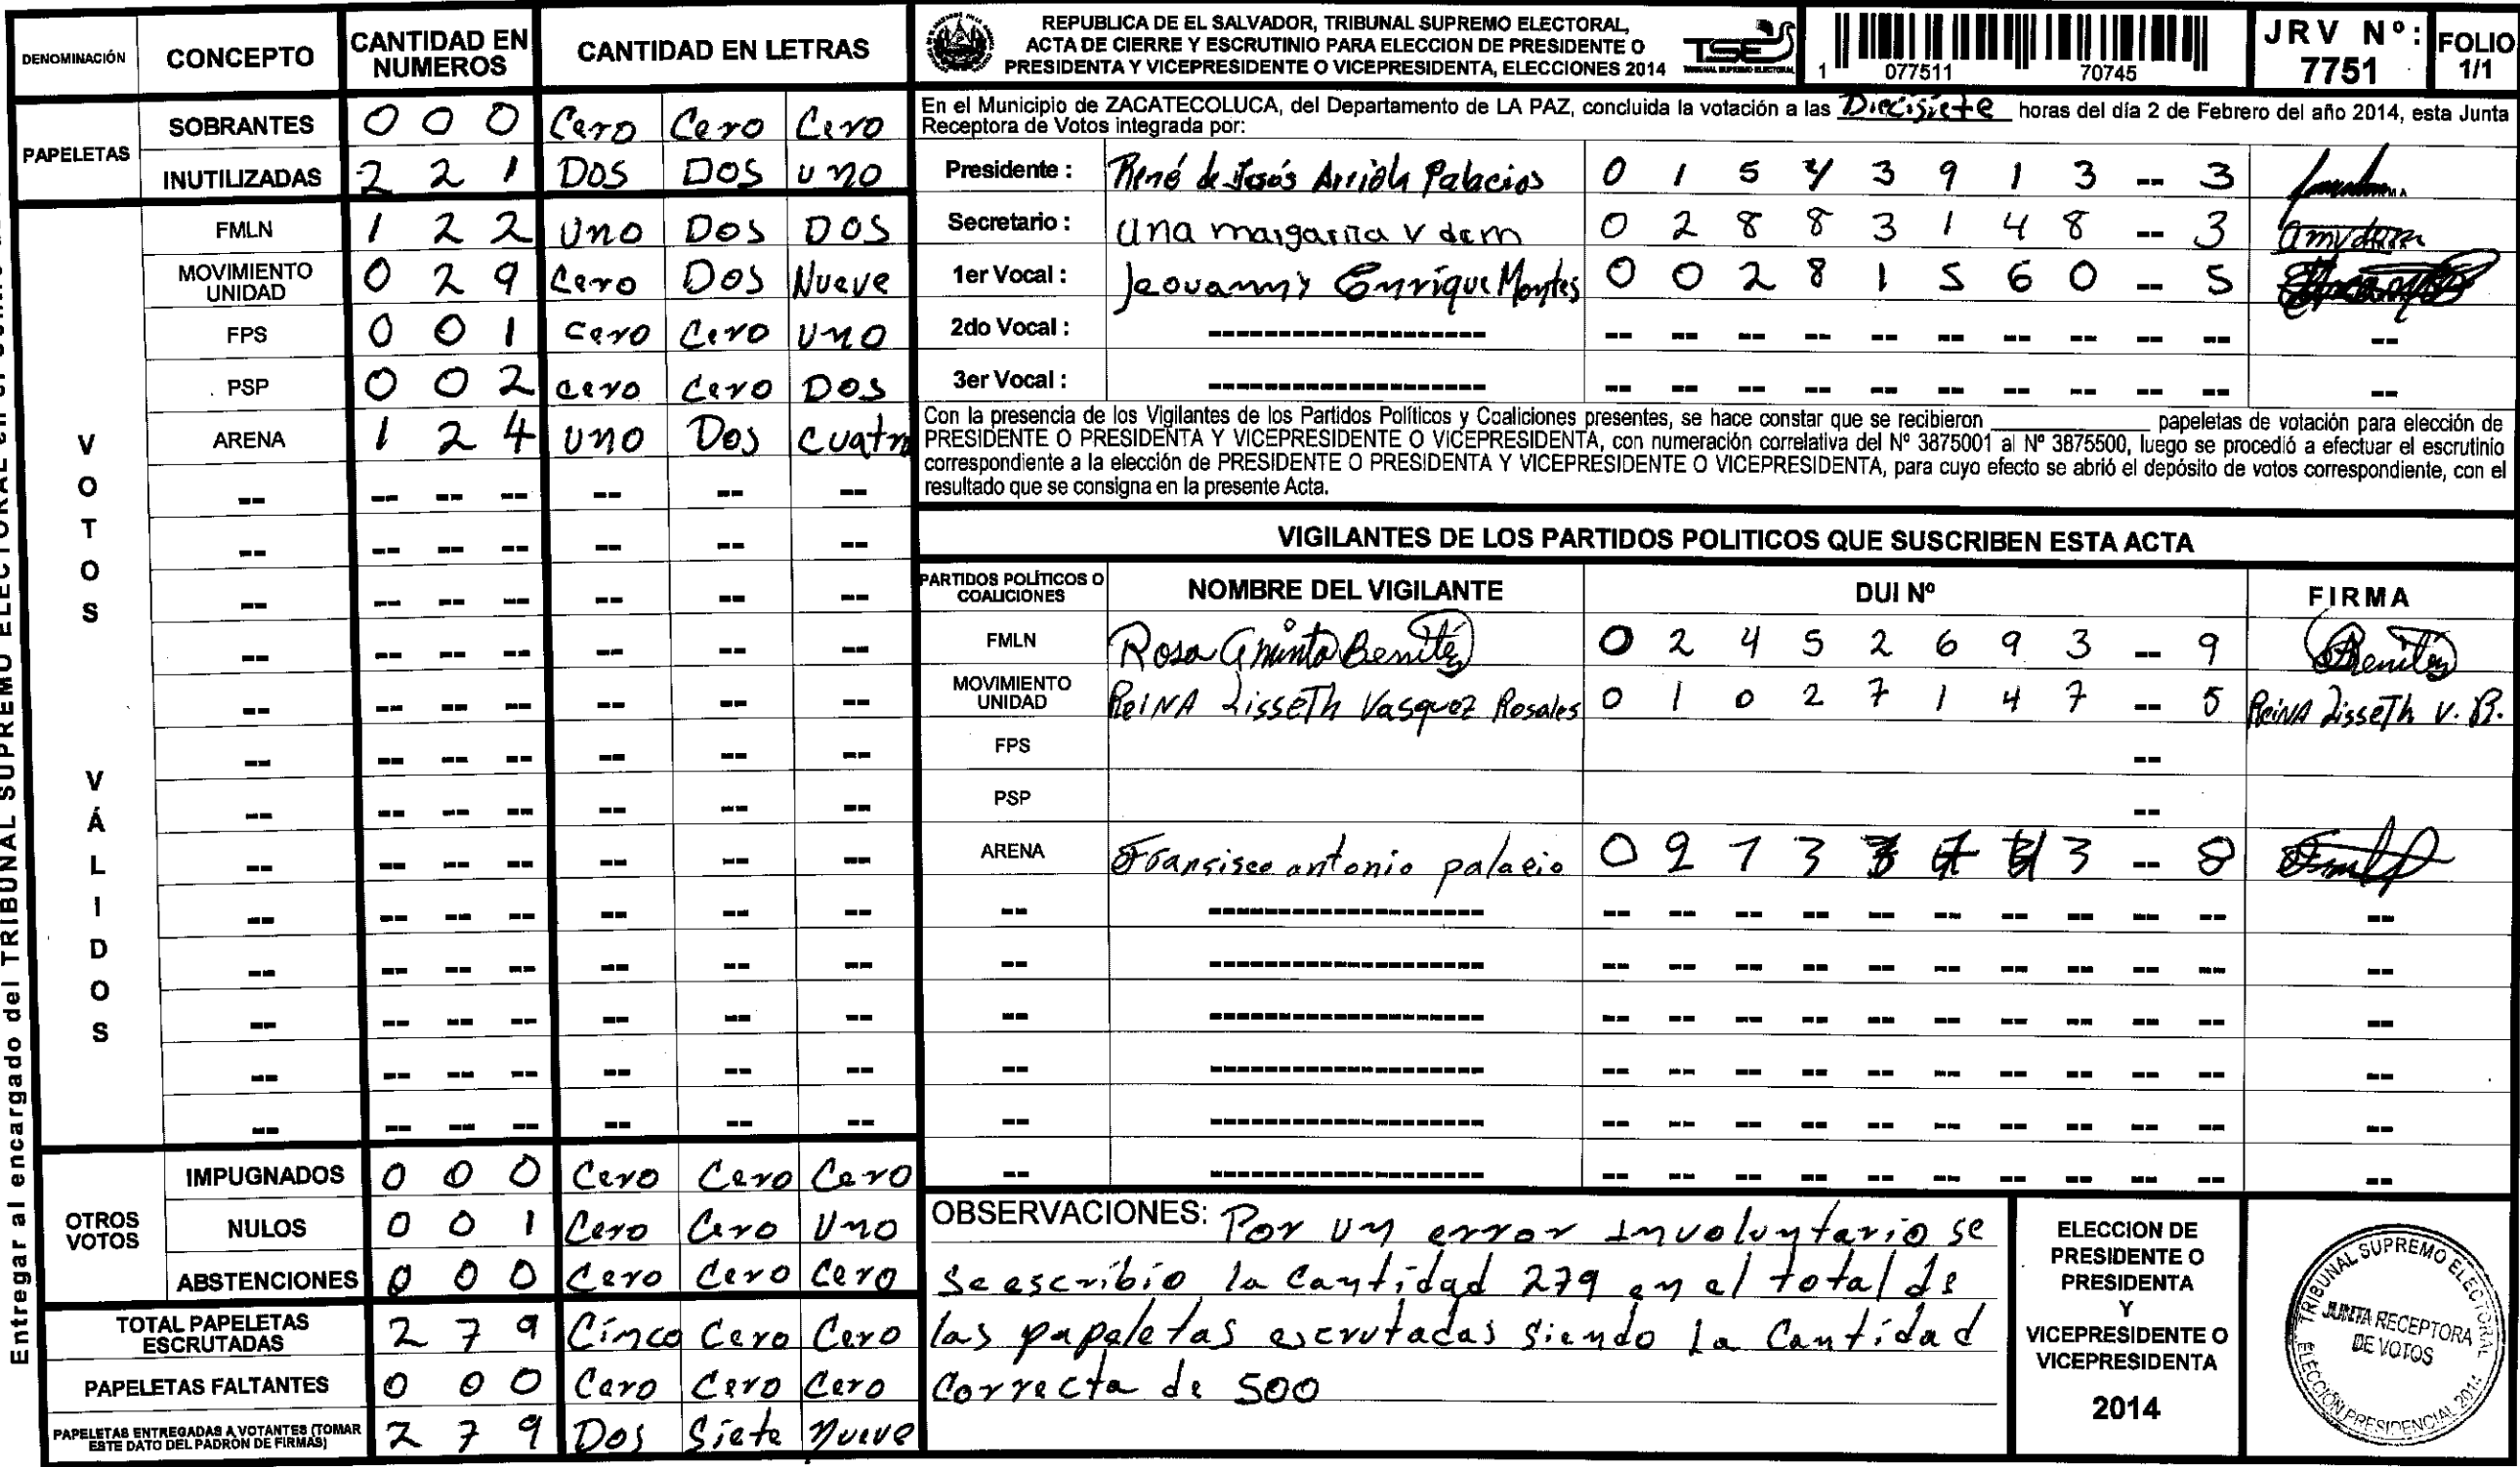 Entregar al encargado del TRIBUNAL SUPREMO ELECTORAL en el
DENOMINACIÓN CONCEPTO CANTIDAD EN NUMEROS CANTIDAD EN LETRAS
PAPELETAS
SOBRANTES 0 0 0 Cero Cero Cero
INUTILIZADAS 2 2 1 DOS DOS uno
VOTOS VÁLIDOS
FMLN 1 2 2 uno Dos DOS
MOVIMIENTO UNIDAD 0 2 9 Cero Dos Nueve
FPS 0 0 1 cero Cero uno
PSP 0 0 2 cero Cero Dos
ARENA 1 2 4 uno Dos cuatro
OTROS VOTOS
IMPUGNADOS 0 0 0 Cero Cero Cero
NULOS 0 0 1 Cero Cero Uno
ABSTENCIONES 0 0 0 Cero Cero Cero
TOTAL PAPELETAS ESCRUTADAS 2 7 9 Cinco Cero Cero
PAPELETAS FALTANTES 0 0 0 Cero Cero Cero
PAPELETAS ENTREGADAS A VOTANTES (TOMAR ESTE DATO DEL PADRON DE FIRMAS) 2 7 9 Dos Siete Nueve
REPUBLICA DE EL SALVADOR, TRIBUNAL SUPREMO ELECTORAL,
ACTA DE CIERRE Y ESCRUTINIO PARA ELECCION DE PRESIDENTE O
PRESIDENTA Y VICEPRESIDENTE O VICEPRESIDENTA, ELECCIONES 2014
TSE
TRIBUNAL SUPREMO ELECTORAL
1 077511 70745
JRV Nº: 7751
FOLIO 1/1
En el Municipio de ZACATECOLUCA, del Departamento de LA PAZ, concluida la votación a las Diecisiete horas del día 2 de Febrero del año 2014, esta Junta
Receptora de Votos integrada por:
Presidente : René de Jesús Arriola Palacios 0 1 5 4 3 9 1 3 -- 3
Secretario : Una margarita V dem 0 2 8 8 3 1 4 8 -- 3
1er Vocal : Jeovanny Enrique Montes 0 0 2 8 1 5 6 0 -- 5
2do Vocal :
3er Vocal :
Con la presencia de los Vigilantes de los Partidos Políticos y Coaliciones presentes, se hace constar que se recibieron ____ papeletas de votación para elección de
PRESIDENTE O PRESIDENTA Y VICEPRESIDENTE O VICEPRESIDENTA, con numeración correlativa del Nº 3875001 al Nº 3875500, luego se procedió a efectuar el escrutinio
correspondiente a la elección de PRESIDENTE O PRESIDENTA Y VICEPRESIDENTE O VICEPRESIDENTA, para cuyo efecto se abrió el depósito de votos correspondiente, con el
resultado que se consigna en la presente Acta.
VIGILANTES DE LOS PARTIDOS POLITICOS QUE SUSCRIBEN ESTA ACTA
PARTIDOS POLÍTICOS O COALICIONES NOMBRE DEL VIGILANTE DUI Nº FIRMA
FMLN Rosa Aminta Benitéz 0 2 4 5 2 6 9 3 -- 9 Benitez
MOVIMIENTO UNIDAD ReINA LisseTh Vasquez Rosales 0 1 0 2 7 1 4 7 -- 5 ReiNA LisseTh V. R.
FPS --
PSP --
ARENA Fransisco antonio palacio 0 2 7 3 3 -- 8
OBSERVACIONES: Por un error involuntario se
se escribio la cantidad 279 en el total de
las papeletas escrutadas siendo la Cantidad
Correcta de 500
ELECCION DE
PRESIDENTE O
PRESIDENTA
Y
VICEPRESIDENTE O
VICEPRESIDENTA
2014
TRIBUNAL SUPREMO ELECTORAL
JUNTA RECEPTORA
DE VOTOS
ELECCIÓN PRESIDENCIAL 2014